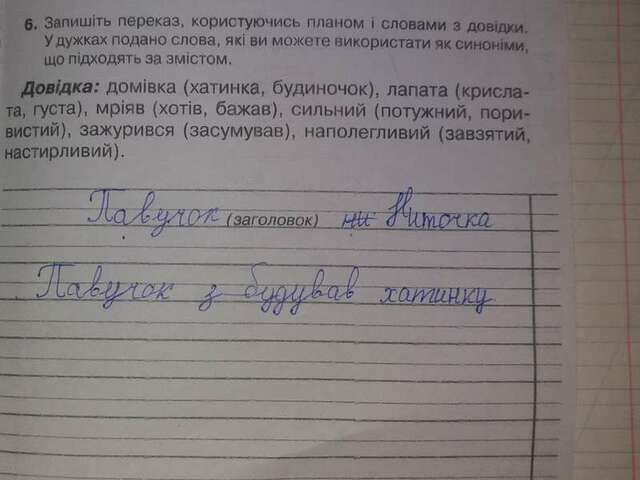 6. Запишіть переказ, користуючись планом і словами з довідки.
У дужках подано слова, які ви можете використати як синоніми,
що підходять за змістом.
Довідка: домівка (хатинка, будиночок), лапата (крисла-
та, густа), мріяв (хотів, бажав), сильний (потужний, пори-
вистий), зажурився (засумував), наполегливий (завзятий,
настирливий).
Павучок (заголовок) ни Ниточка
Павучок з будував хатинку